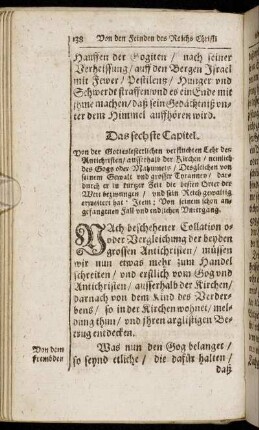 138 Von den Feinden des Reichs Christi
Hauffen der Gogiten / nach seiner
Verheissung / auff den Bergen Israel
mit Fewer / Pestilentz / Hunger und
Schwerdt straffen und es ein Ende mit
ihme machen / daß sein Gedächtniß un-
ter dem Himmel auffhören wird.
Das sechste Capitel.
Von der Gotteslesterlichen verfluchten Lehr des
Antichristen / ausserhalb der Kirchen / nemlich
des Gogs oder Mahumets / Desgleichen von
seinem Gewalt und grosser Tyranney / das-
durch er in kurtzer Zeit die besten Örter der
Welt bezwungen / und sein Reich gewaltig
erweitert hat: Item: Von seinem schon an-
gefangenen Fall und endlichen Untergang.
NAch beschehener Collation o-
oder Vergleichung der beyden
grossen Antichristen / müssen
wir nun etwas mehr zum Handel
schreiten / und erstlich vom Gog und
Antichristen / ausserhalb der Kirchen /
darnach von dem Kind des Verder-
bens / so in der Kirchen wohnet / mel-
dung thun / und ihren arglistigen Be-
trug entdecken.
Von dem
frembden
Was nun den Gog belanget /
so seynd etliche / die dafür halten /
daß